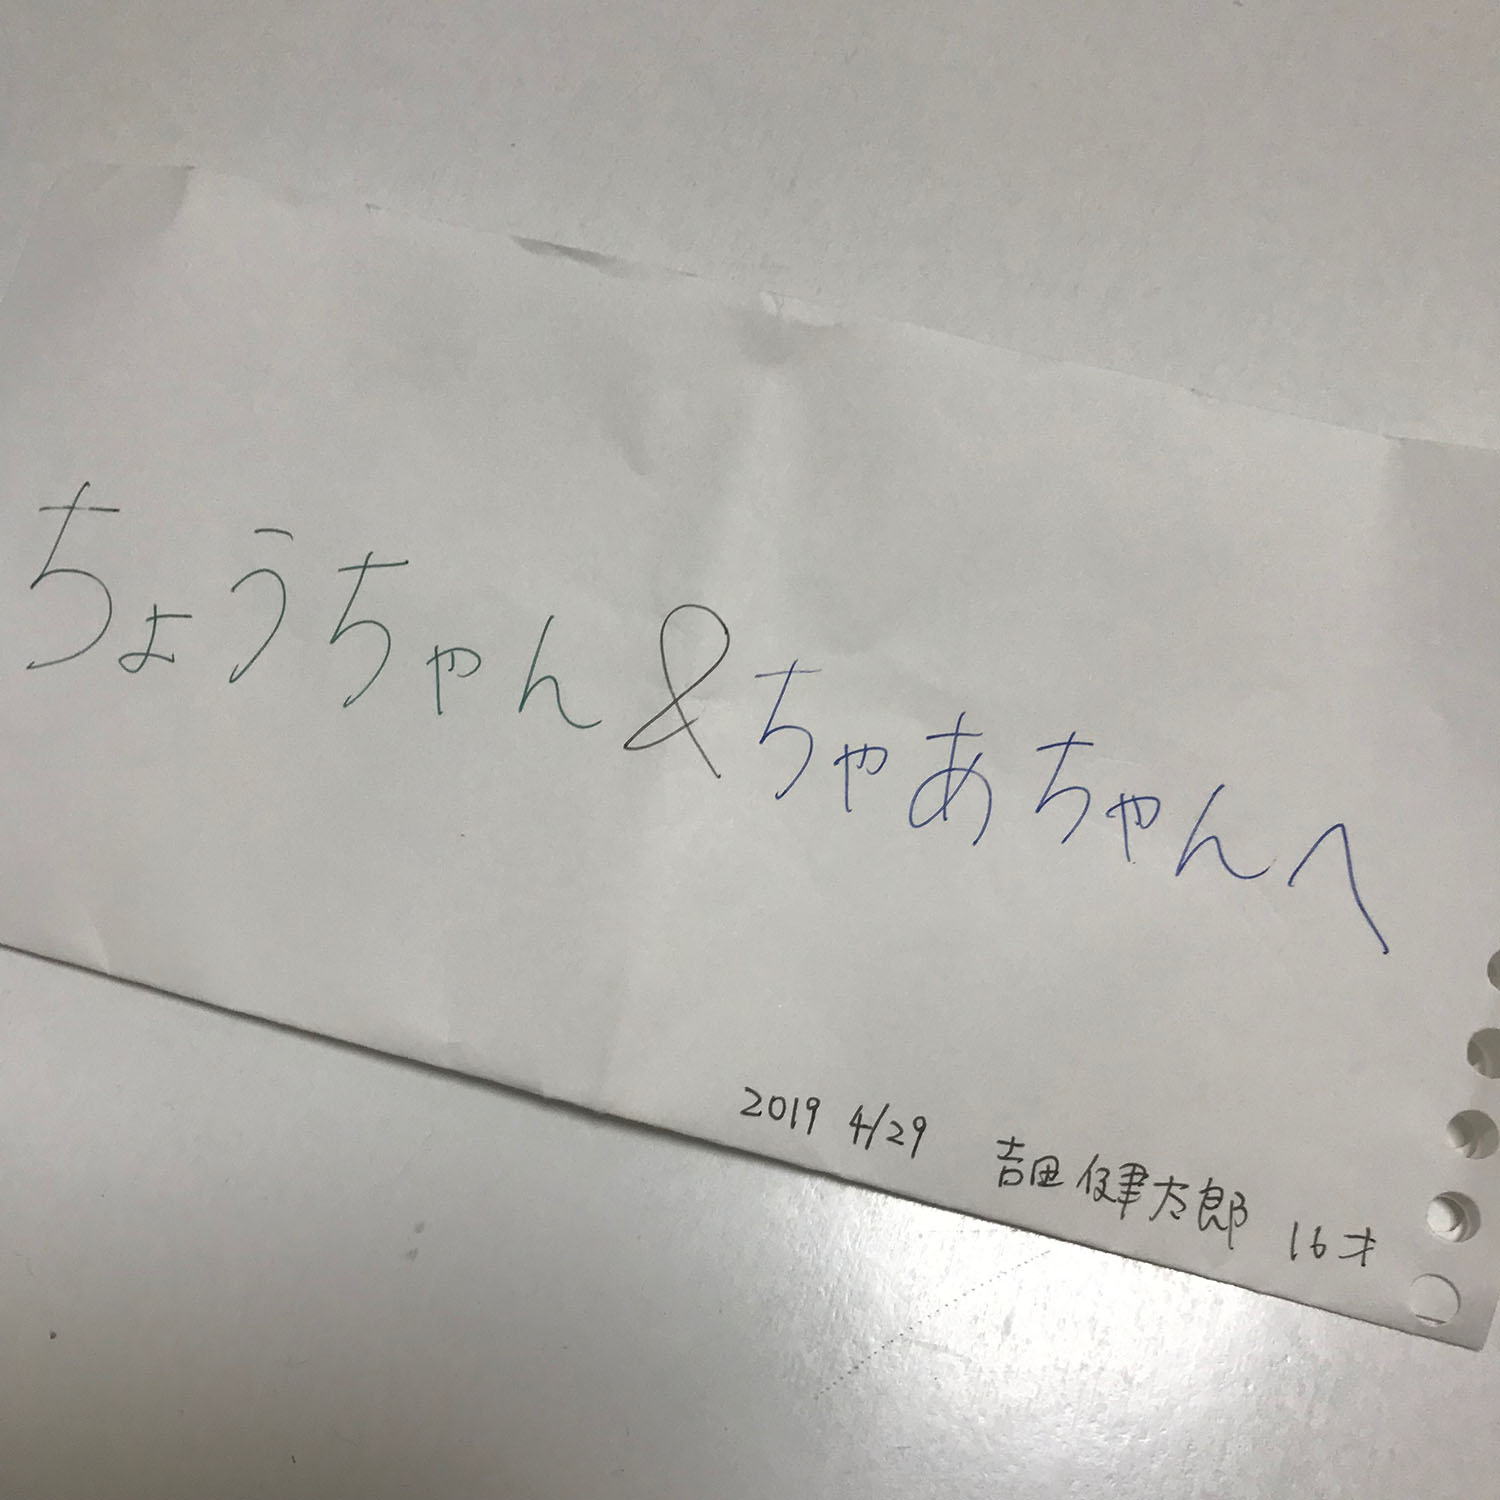 ちょうちゃん&ちゃあちゃんへ
2019 4/29 吉田健太郎 16才